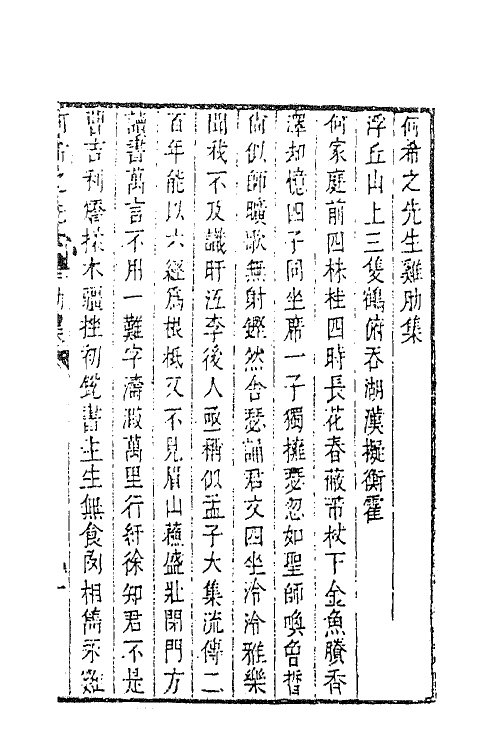 何希之先生雞肋集
浮丘山上三隻鶴俯吞湖漢擬衡霍
何家庭前四株桂四時長花春蔽芾杖下金魚賸香
澤却憶四子同坐席一子獨擁瑟忽如聖師喚曾晳
何似師曠歌無射鏗然舍瑟誦君文四坐泠泠雅樂
聞我不及識盱江李後人亟稱似孟子大集流傳二
百年能以六經爲根柢又不見眉山蘇盛壯閉門方
讀書萬言不用一難字濤瀾萬里行紆徐知君不是
曹吉利 木彊挫初 書生生無食肉相雋永雞